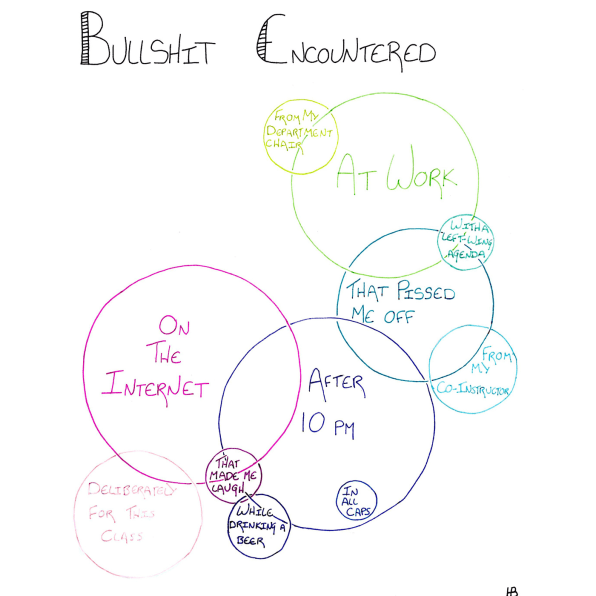 BULLSHIT ENCOUNTERED
FROM MY
DEPARTMENT
CHAIR
AT WORK
WITH A
LEFT-WING
AGENDA
THAT PISSED
ME OFF
ON
THE
INTERNET
AFTER
10 PM
FROM
MY
CO-INSTRUCTOR
THAT
MADE ME
LAUGH
DELIBERATELY
FOR THIS
CLASS
WHILE
DRINKING A
BEER
IN
ALL
CAPS
HB